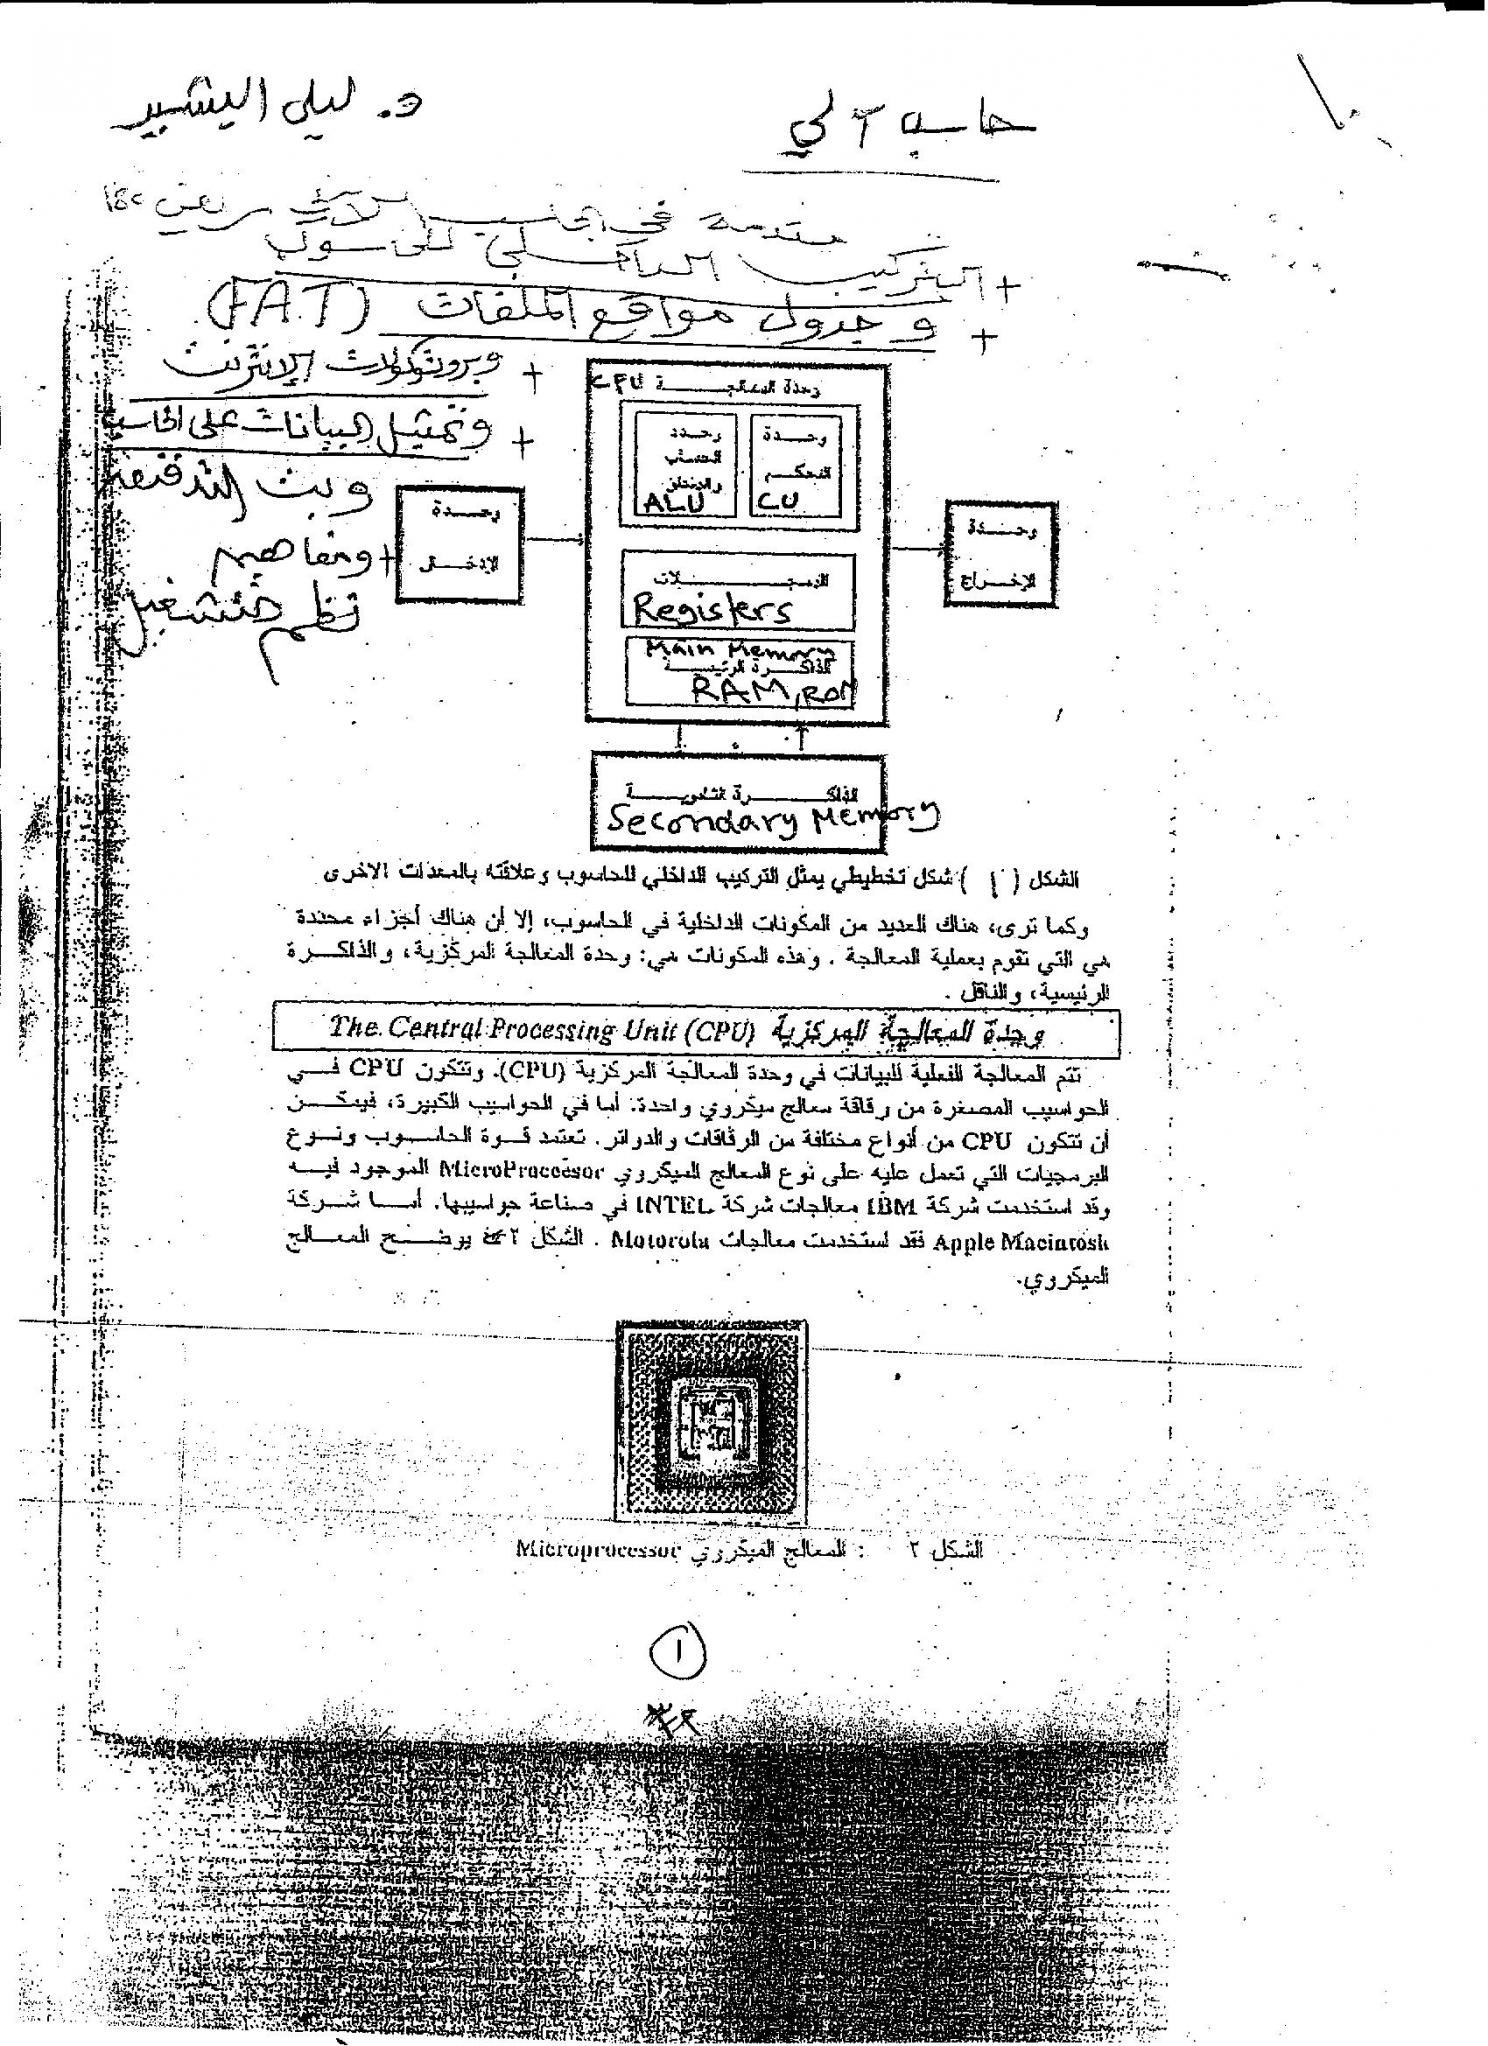 حاسب آلي
د. ليلى البشير
مقدمة في الحاسب الآلي
+ التركيب الداخلي للحاسوب
+ وجدول مواقع الملفات (FAT)
+ وبروتوكولات الإنترنت
+ وتمثيل البيانات على الحاسب
وبث
+ ومفاهيم
نظم
وحدة المعالجة CPU
وحدة التحكم CU
وحدة الحساب والمنطق ALU
وحدة الإدخال
وحدة الإخراج
المسجلات
Registers
Main Memory
الذاكرة الرئيسية
RAM, ROM
الذاكرة الثانوية
Secondary Memory
الشكل (١) شكل تخطيطي يمثل التركيب الداخلي للحاسوب وعلاقته بالمعدات الاخرى
وكما ترى، هناك العديد من المكونات الداخلية في الحاسوب، إلا أن هناك أجزاء محددة
هي التي تقوم بعملية المعالجة . وهذه المكونات هي: وحدة المعالجة المركزية، والذاكرة
الرئيسية، والناقل .
وحدة المعالجة المركزية The Central Processing Unit (CPU)
تتم المعالجة الفعلية للبيانات في وحدة المعالجة المركزية (CPU). وتتكون CPU في
الحواسيب المصغرة من رقاقة معالج ميكروي واحدة. أما في الحواسيب الكبيرة، فيمكن
أن تتكون CPU من أنواع مختلفة من الرقاقات والدوائر. تعتمد قوة الحاسوب ونوع
البرمجيات التي تعمل عليه على نوع المعالج الميكروي MicroProccesor الموجود فيه
وقد استخدمت شركة IBM معالجات شركة INTEL في صناعة حواسيبها. أما شركة
Apple Macintosh فقد استخدمت معالجات Motorola . الشكل ٢ يوضح المعالج
الميكروي.
الشكل ٢ : المعالج الميكروي Microprocessor
١